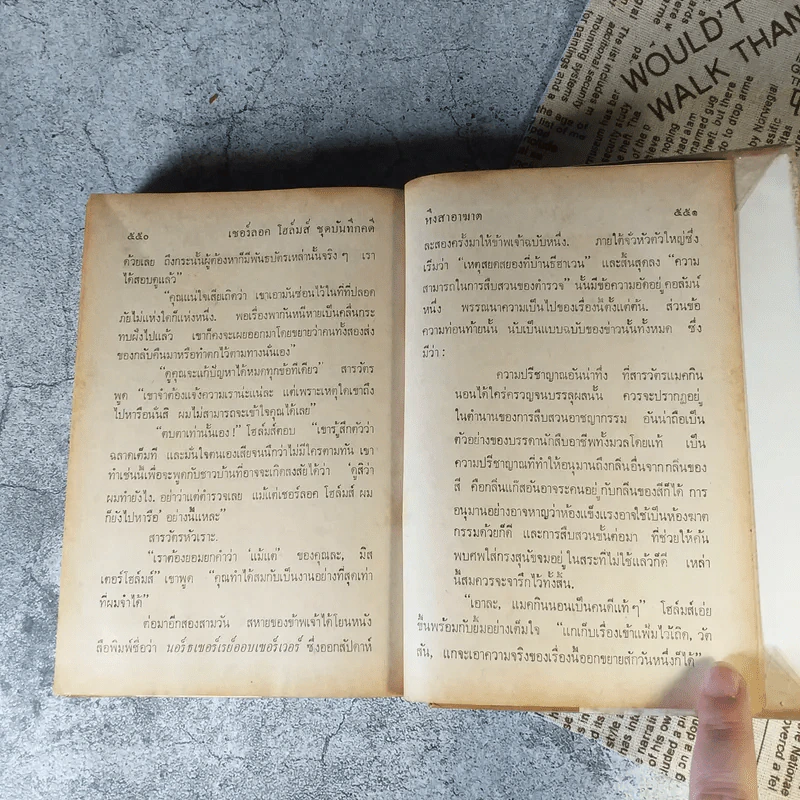 ๕๕๐ เชอร์ลอค โฮล์มส์ ชุดบันทึกคดี
ด้วยเลย ถึงกระนั้นผู้ต้องหาก็มีพันธบัตรเหล่านั้นจริง ๆ เรา
ได้สอบดูแล้ว”
“คุณแน่ใจเสียเถิดว่า เขาเอามันซ่อนไว้ในที่ที่ปลอด
ภัยไม่แห่งใดก็แห่งหนึ่ง. พอเรื่องพากันหนีหายเป็นคลื่นกระ
ทบฝั่งไปแล้ว เขาก็คงจะเผยออกมาโดยขยายว่าคนทั้งสองส่ง
ของกลับคืนมาหรือทำตกไว้ตามทางนั่นเอง”
“ดูคุณจะแก้ปัญหาได้หมดทุกข้อทีเดียว” สารวัตร
พูด “เขาจำต้องแจ้งความเราน่ะแน่ละ แต่เพราะเหตุใดเขาถึง
ไปหารือท่านนั่นสิ ผมไม่สามารถจะเข้าใจคุณได้เลย”
“ตบตาเท่านั้นเอง!” โฮล์มส์ตอบ “เขารู้สึกตัวว่า
ฉลาดเต็มที และมั่นใจตนเองเสียจนนึกว่าไม่มีใครตามทัน เขา
ทำเช่นนี้เพื่อจะพูดกับชาวบ้านที่อาจจะเกิดสงสัยได้ว่า ‘ดูสิว่า
ผมทำยังไง. อย่าว่าแต่ตำรวจเลย แม้แต่เชอร์ลอค โฮล์มส์ ผม
ก็ยังไปหารือ’ อย่างนี้แหละ”
สารวัตรหัวเราะ.
“เราต้องยอมยกคำว่า ‘แม้แต่’ ของคุณละ, มิส
เตอร์โฮล์มส์” เขาพูด “คุณทำได้สมกับเป็นงานอย่างที่สุดเท่า
ที่ผมจำได้”
ต่อมาอีกสองสามวัน สหายของข้าพเจ้าได้โยนหนัง
สือพิมพ์ชื่อว่า นอร์ธเซอร์เรย์ออบเซอร์เวอร์ ซึ่งออกสัปดาห์
หึงสาอาฆาต ๕๕๑
ละสองครั้งมาให้ข้าพเจ้าฉบับหนึ่ง. ภายใต้จั่วหัวตัวใหญ่ซึ่ง
เริ่มว่า “เหตุสยดสยองที่บ้านธีฮาเวน” และสิ้นสุดลง “ความ
สามารถในการสืบสวนของตำรวจ” นั้นมีข้อความอัดอยู่คอลัมน์
หนึ่ง พรรณนาความเป็นไปของเรื่องนี้ตั้งแต่ต้น. ส่วนข้อ
ความท่อนท้ายนั้น นับเป็นแบบฉบับของข่าวนั้นทั้งหมด ซึ่ง
มีว่า :
ความปรีชาญาณอันน่าทึ่ง ที่สารวัตรแมคกิน
นอนได้ใคร่ครวญจนบรรลุผลนั้น ควรจะปรากฏอยู่
ในตำนานของการสืบสวนอาชญากรรม อันน่าถือเป็น
ตัวอย่างของบรรดานักสืบอาชีพทั้งมวลโดยแท้ เป็น
ความปรีชาญาณที่ทำให้อนุมานถึงกลิ่นอื่นจากกลิ่นของ
สี คือกลิ่นแก๊สอันอาจระคนอยู่กับกลิ่นของสีก็ได้ การ
อนุมานอย่างอาจหาญว่าห้องแข็งแรงอาจใช้เป็นห้องฆาต
กรรมด้วยก็ดี และการสืบสวนขั้นต่อมา ที่ช่วยให้ค้น
พบศพใส่กรงสุนัขจมอยู่ในสระที่ไม่ใช้แล้วก็ดี เหล่า
นี้สมควรจะจารึกไว้ทั้งสิ้น.
“เอาละ, แมคกินนอนเป็นคนดีแท้ ๆ” โฮล์มส์เอ่ย
ขึ้นพร้อมกับยิ้มอย่างเต็มใจ “แกเก็บเรื่องเข้าแฟ้มไว้เถิด, วัต
สัน, แกจะเอาความจริงของเรื่องนี้ออกขยายสักวันหนึ่งก็ได้”
WOULD'T
WALK THAN